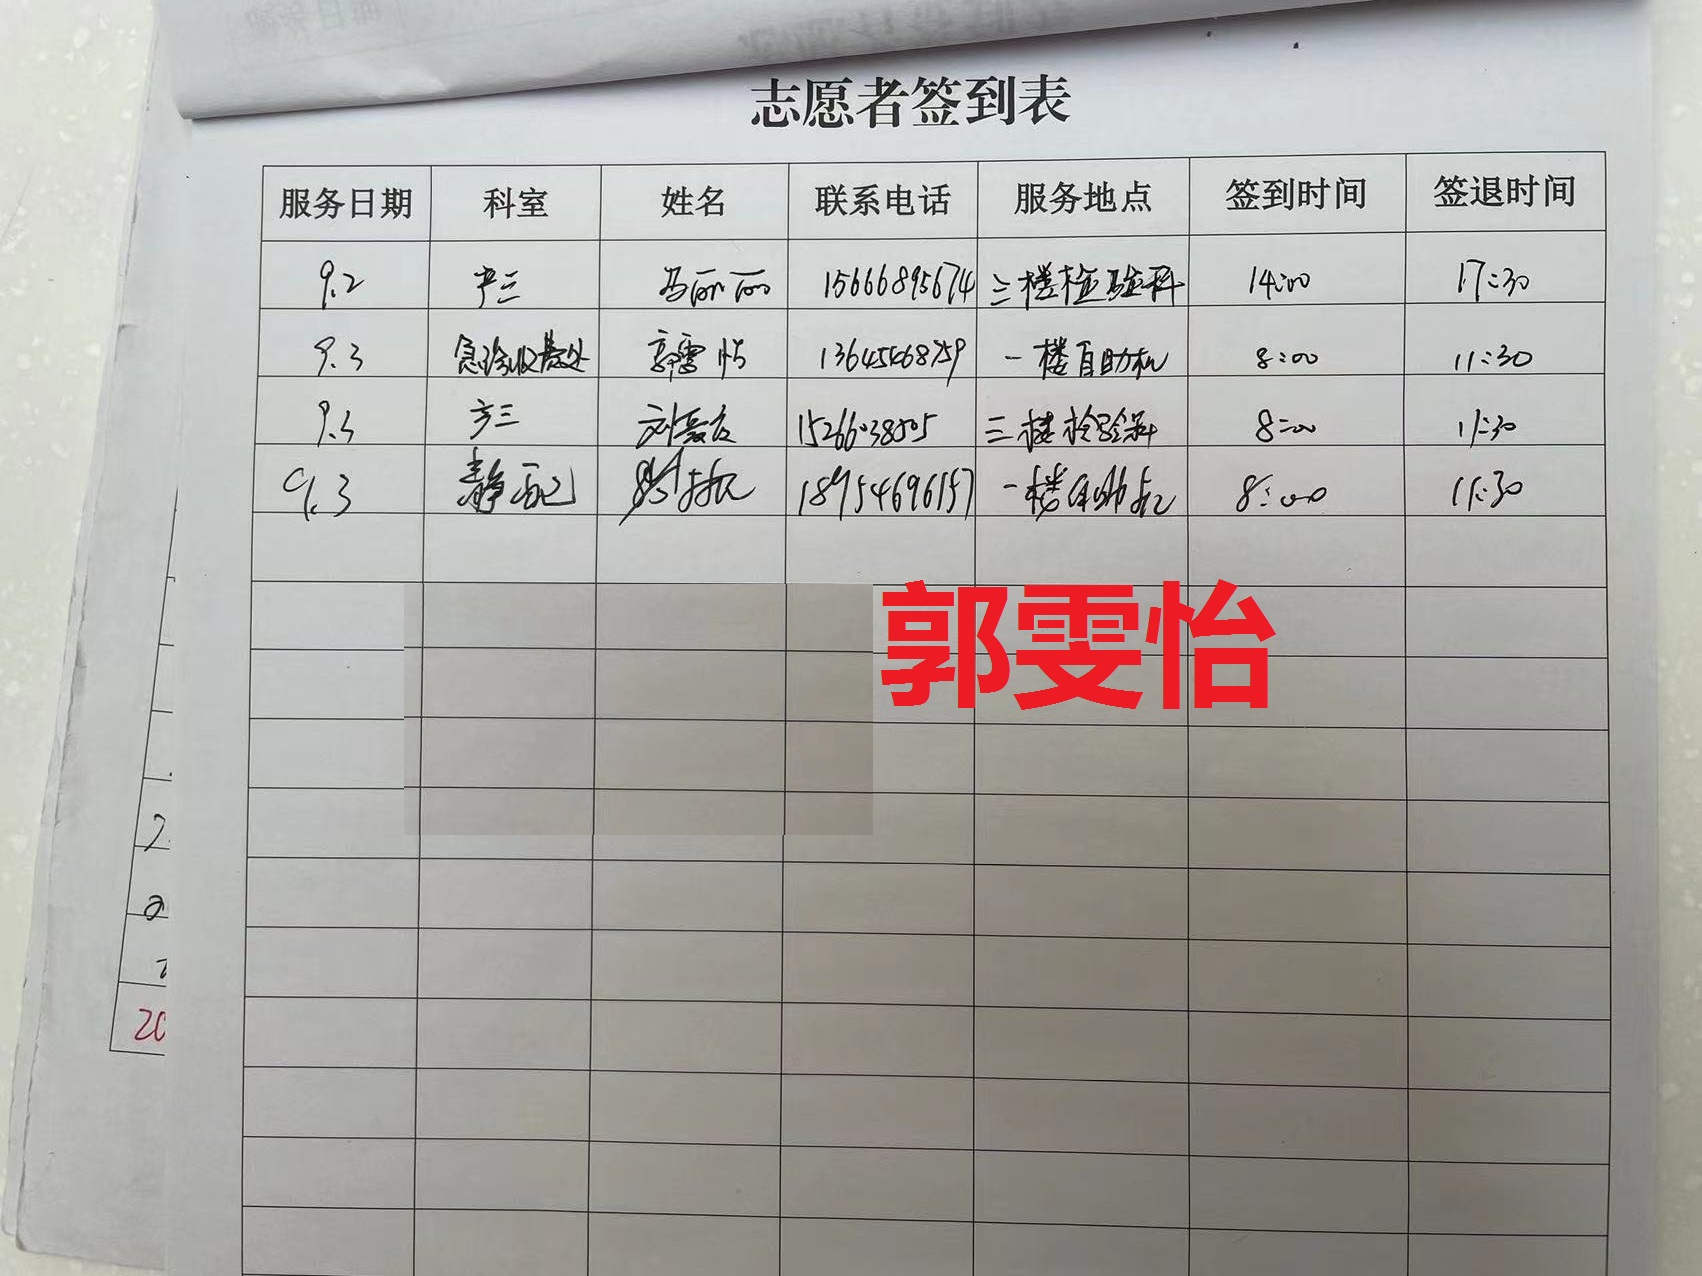 志愿者签到表
服务日期 科室 姓名 联系电话 服务地点 签到时间 签退时间
9.2 产三 马丽丽 15666895674 三楼检验科 14:00 17:30
9.3 急诊收费处 郭雯怡 一楼自助机 8:00 11:30
9.3 三 刘 15266038505 三楼检验科 8:00 11:30
9.3 静配 18954696157 一楼自助机 8:00 11:30
郭雯怡
20